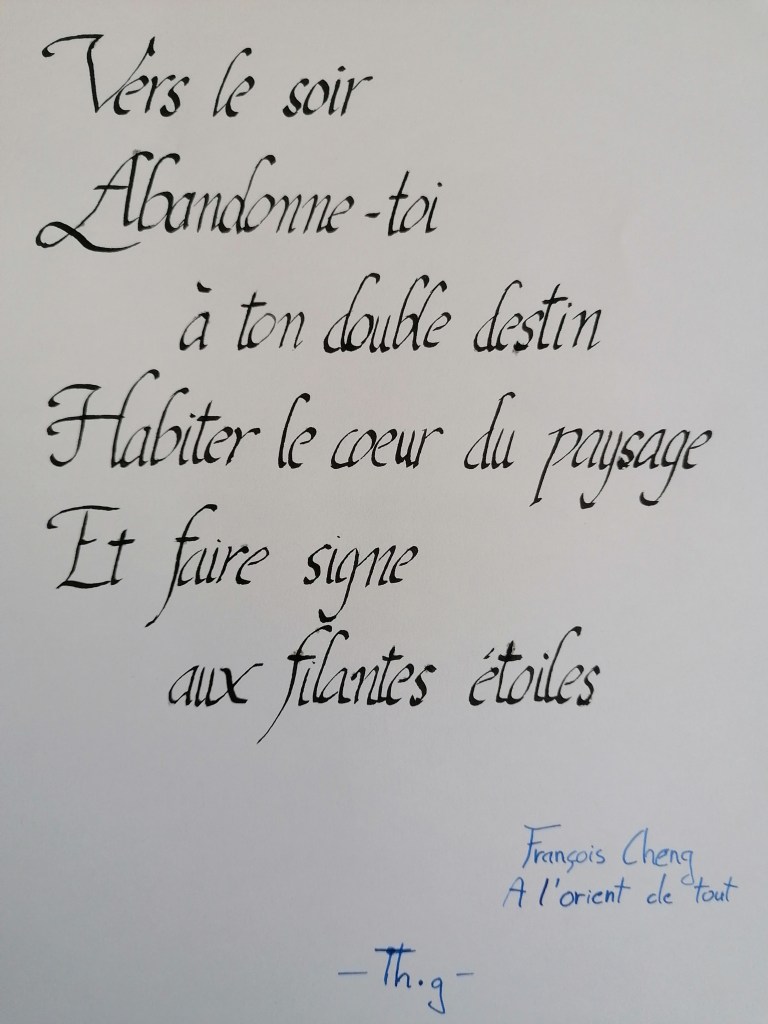 Vers le soir
Abandonne-toi
à ton double destin
Habiter le coeur du paysage
Et faire signe
aux filantes étoiles
François Cheng
A l'orient de tout
- Th.g -